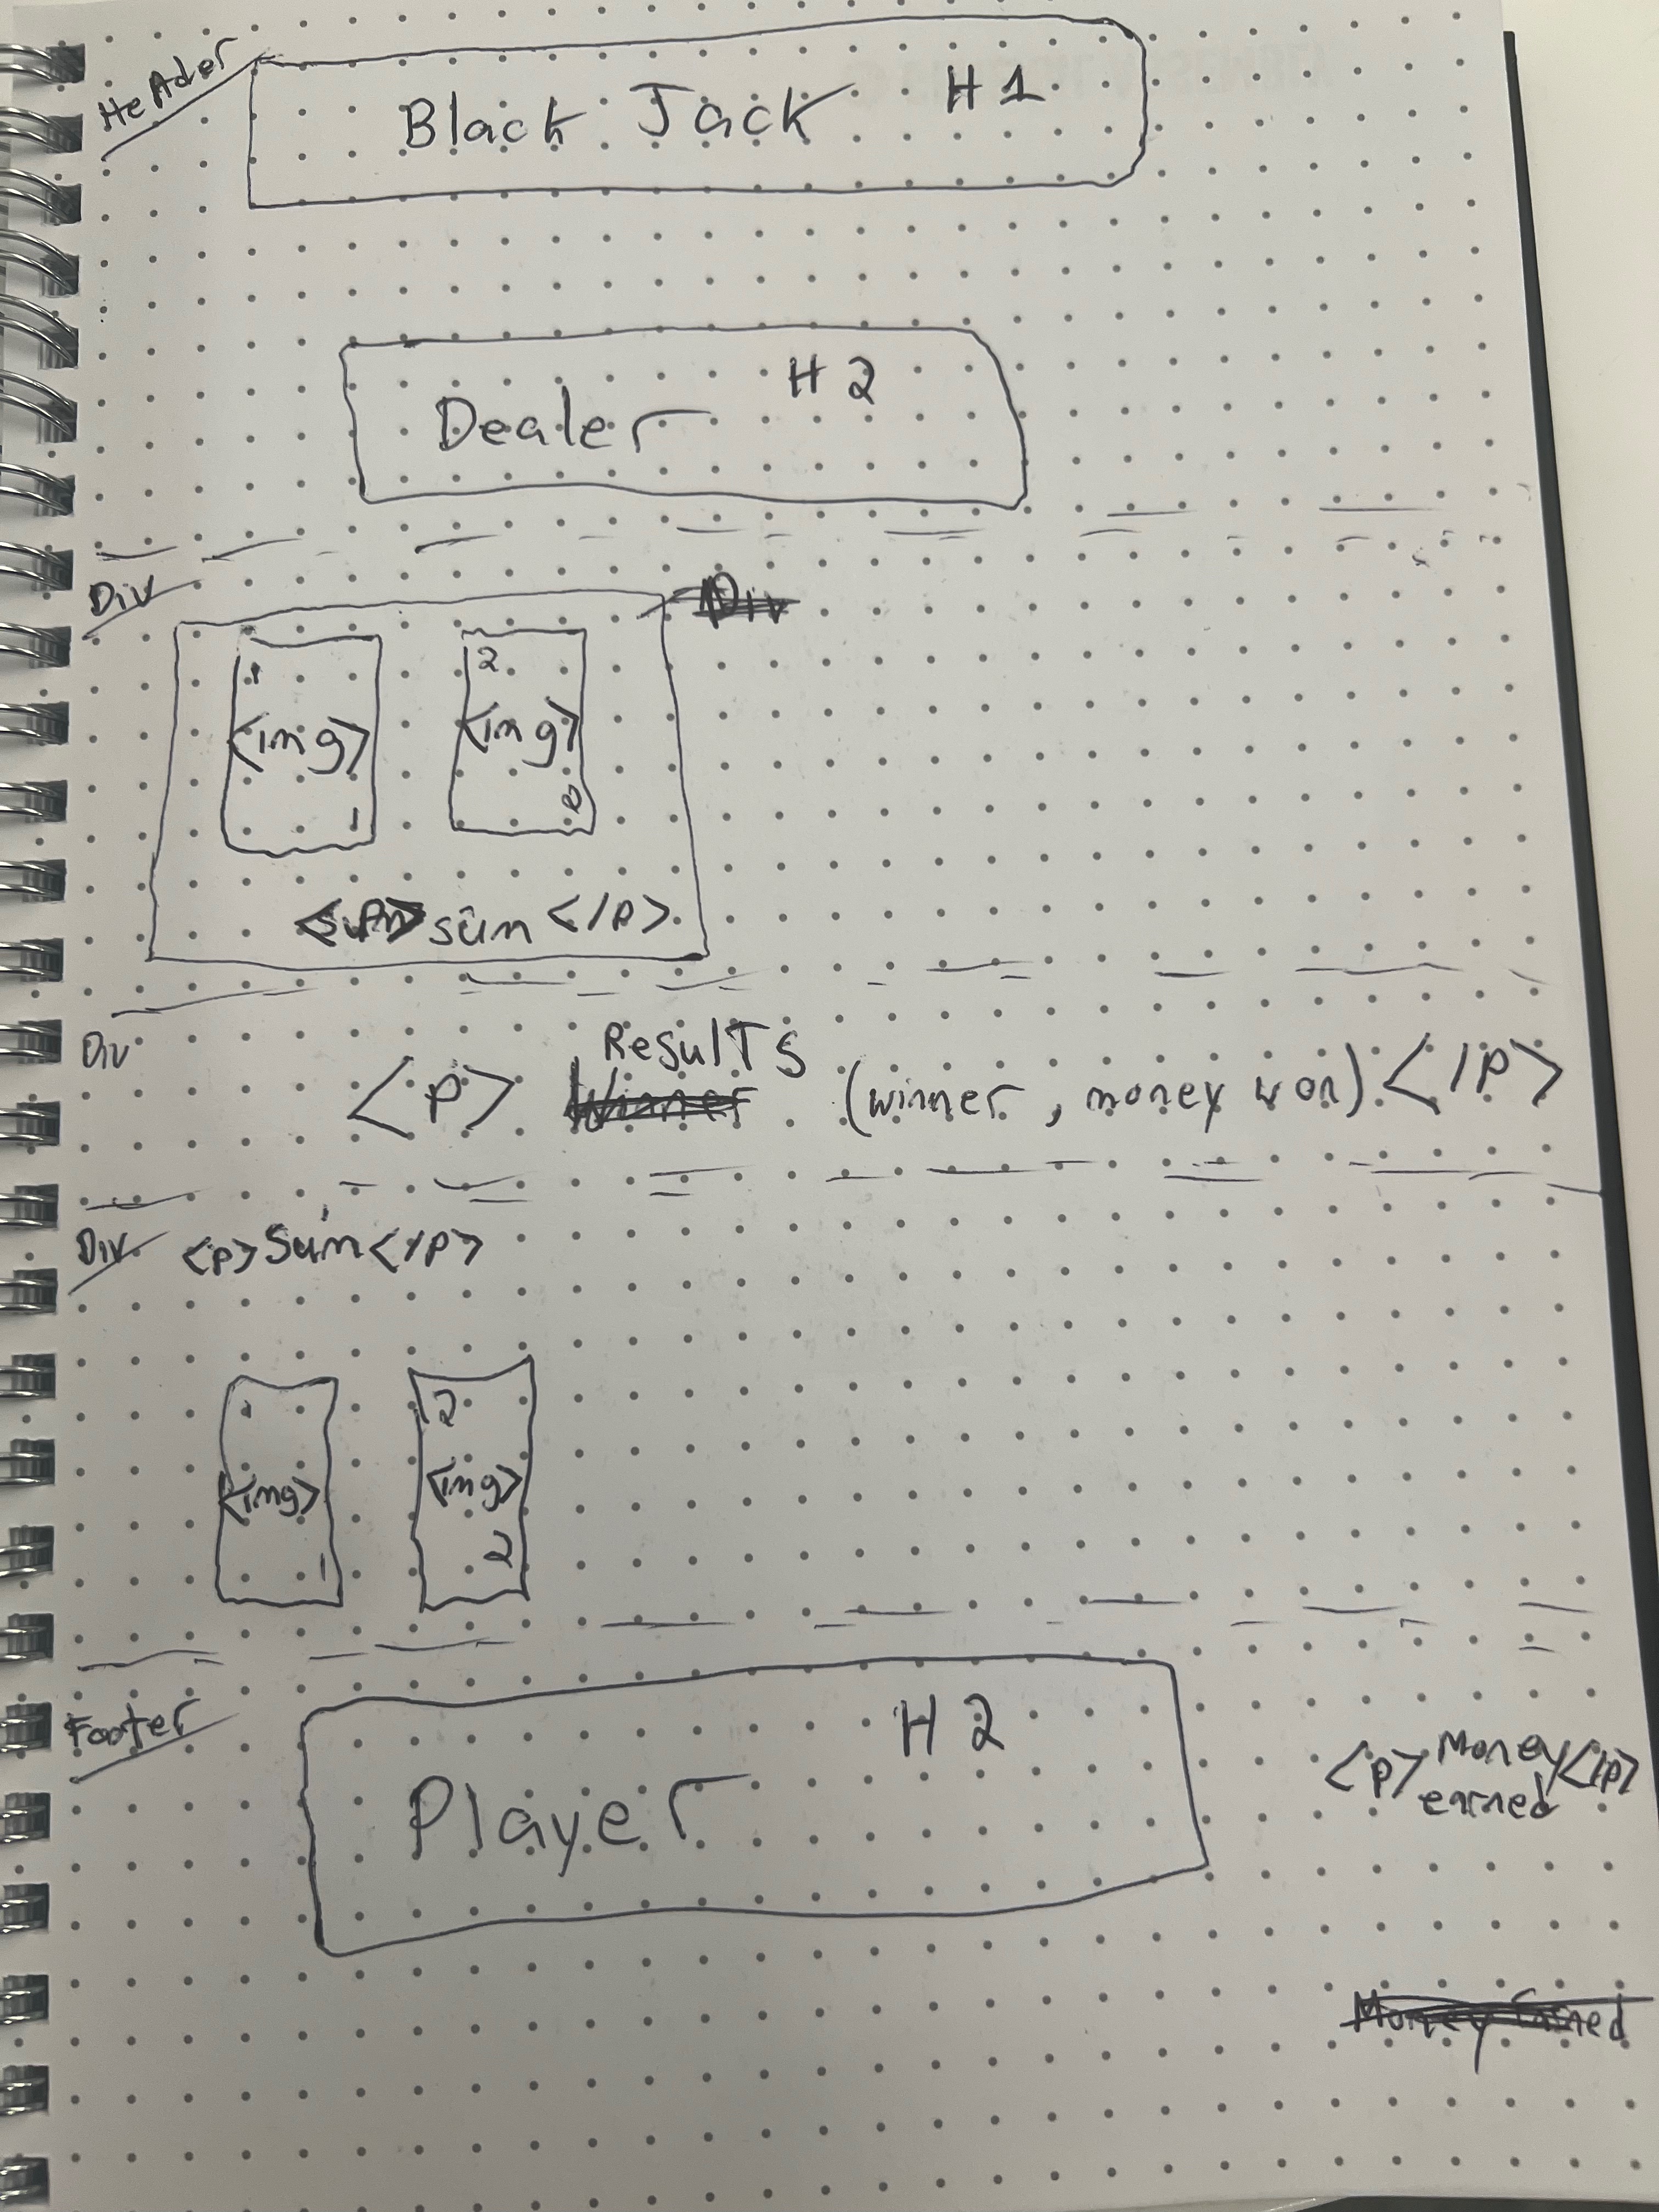 HeAder
Black Jack H1
Dealer H2
Div
1 2
<img> <img>
1 2
sum </p>
Div
Results
<p> (winner, money won) </p>
Div <p>Sum</p>
2
<img> <img>
1 2
Footer
Player H2
<p> Money </p>
earned